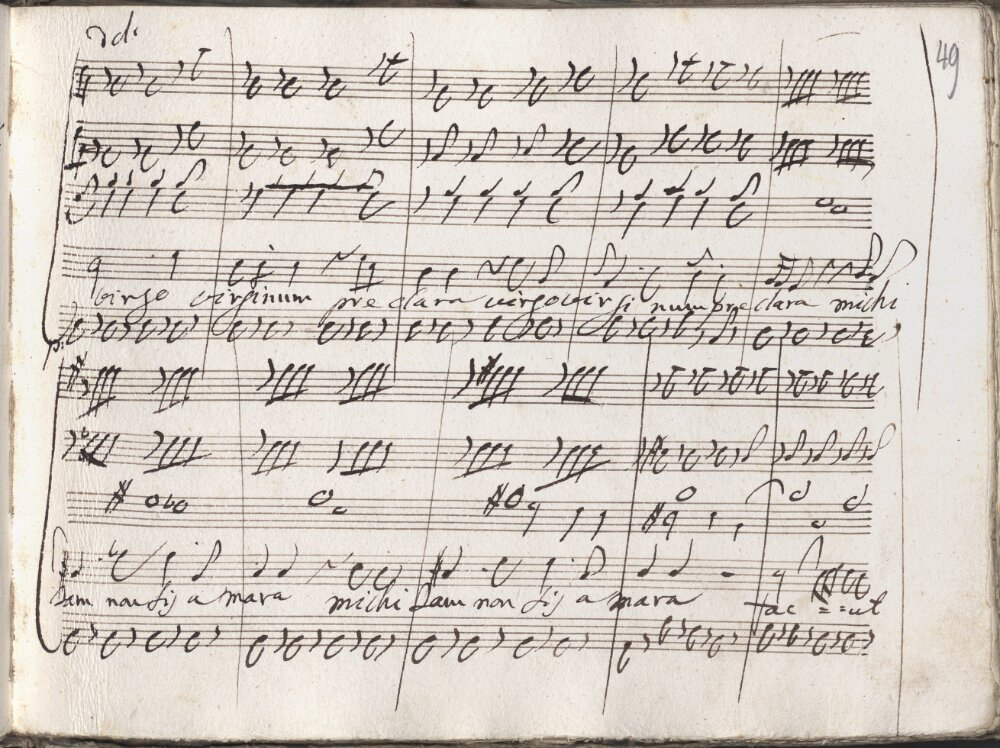 49
virgo virginum pre clara virgo virgi num pre clara michi
Jam non sis a mara michi Jam non sis a mara fac = = ut